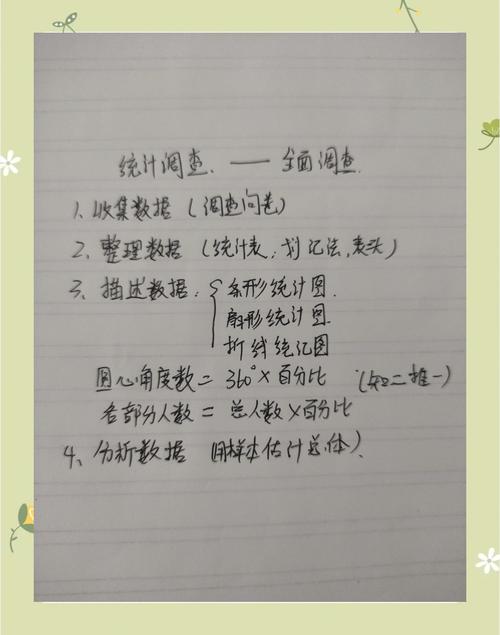 统计调查. —— 全面调查.
1、收集数据 (调查问卷)
2、整理数据 (统计表, 划记法, 表头)
3、描述数据: { 条形统计图.
扇形统计图.
折线统记图
圆心角度数 = 360° × 百分比 (知二推一)
各部分人数 = 总人数 × 百分比
4、分析数据 (用样本估计总体)